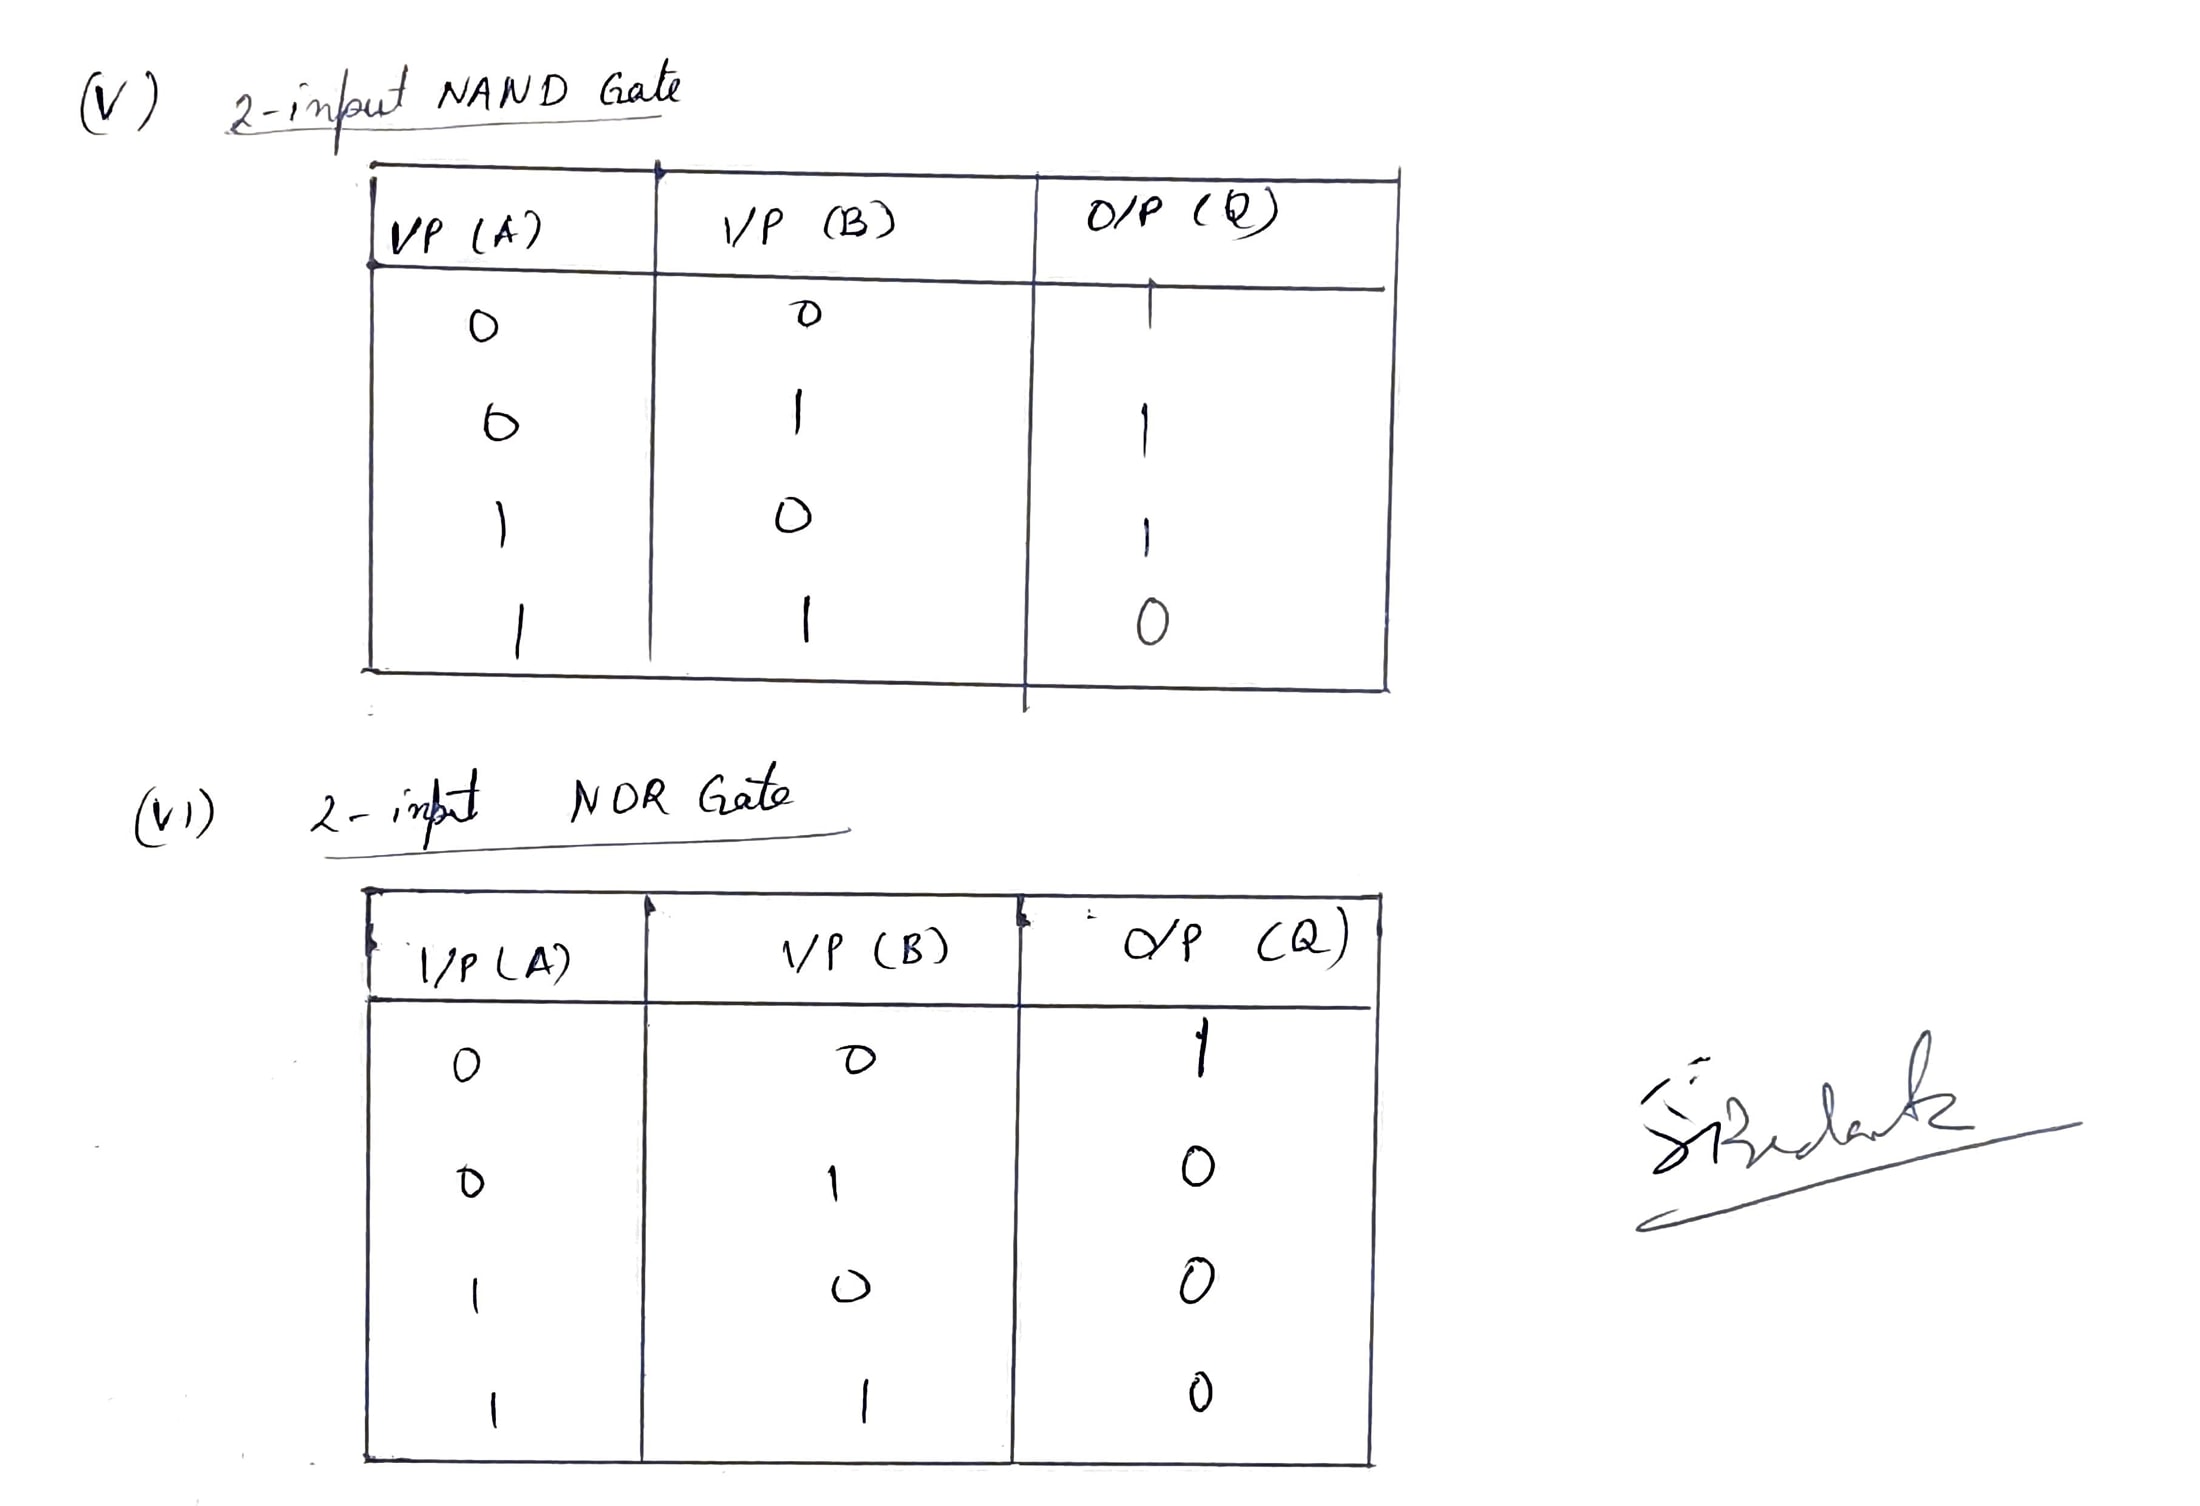 (V) 2-input NAND Gate
I/P (A) I/P (B) O/P (Q)
0 0 1
0 1 1
1 0 1
1 1 0
(VI) 2-input NOR Gate
I/P (A) I/P (B) O/P (Q)
0 0 1
0 1 0
1 0 0
1 1 0